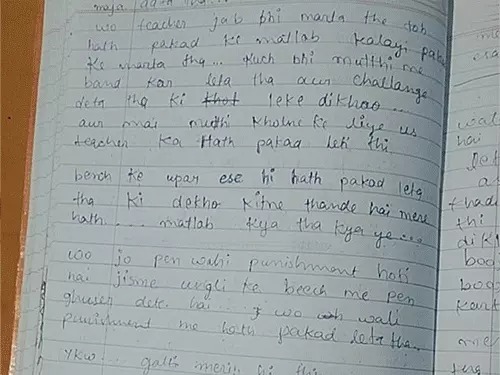 maja
wo teacher jab bhi marta the toh
hath pakad ke matlab kalayi pakad
ke marta tha... kuch bhi mutthi me
band kar leta tha aur challange
deta tha ki leke dikhao...
aur mai muthi kholne ke liye us
teacher ka hath pakad leti thi
bench ke upar ese hi hath pakad leta
tha ki dekho kitne thande hai mere
hath... matlab kya tha kya ye...
wo jo pen wali punishment hoti
hai jisme ungli ke beech me pen
ghuser dete hai... wo wali
punishment me hath pakad leta tha.
Ykw galti meri hi thi
wali
hai
thadi
thi
dik
me